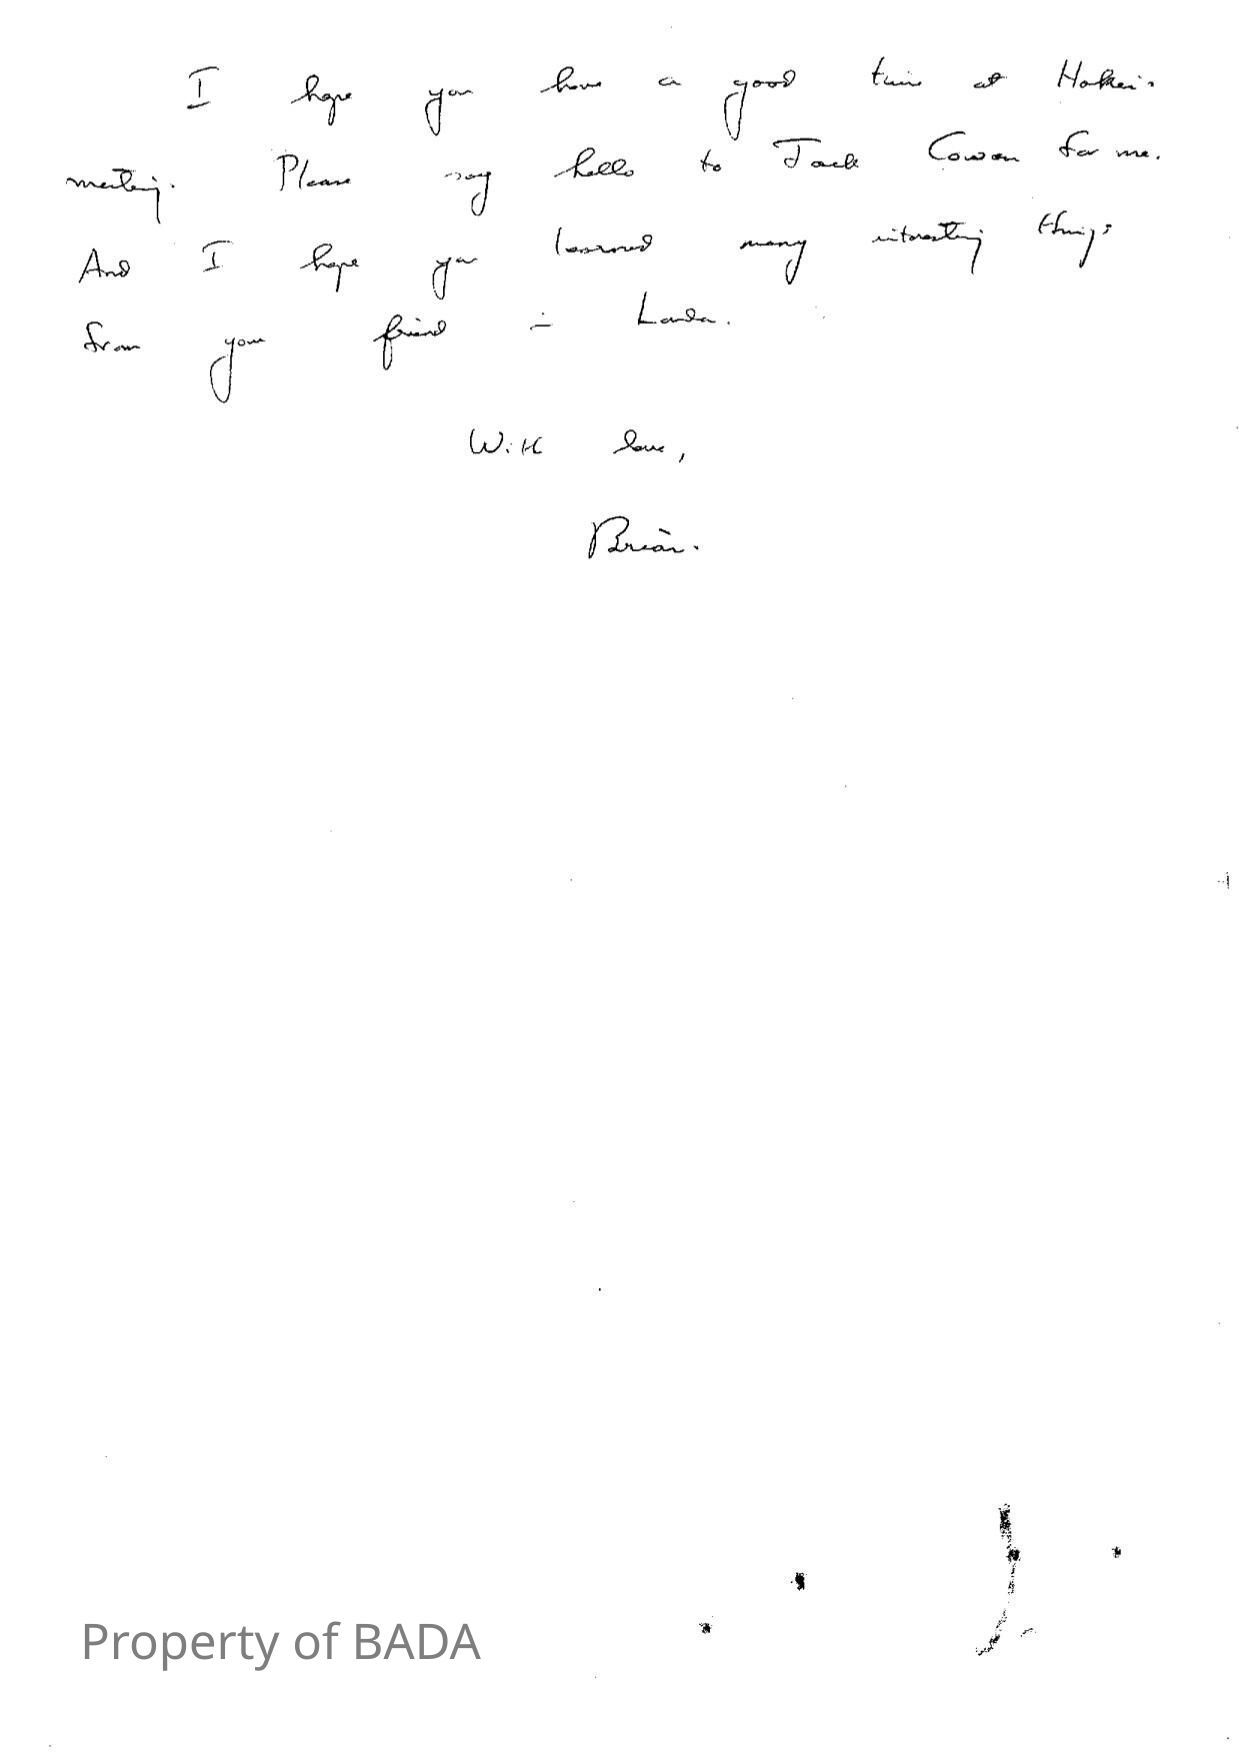 I hope you have a good time at Haken's
meeting. Please say hello to Jack Cowan for me.
And I hope you learned many interesting things
from your friend in London.
With love,
Brian.
Property of BADA